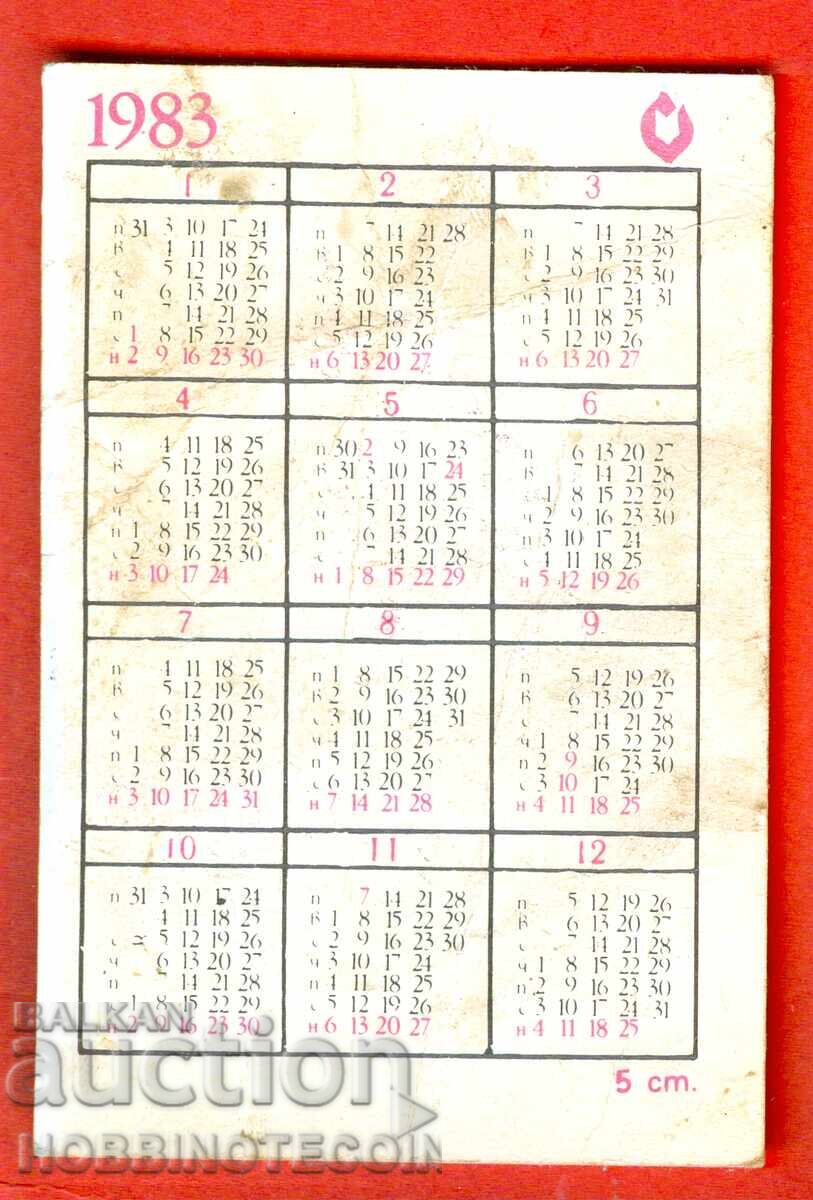 1983
1 2 3
п 31 3 10 17 24
в 4 11 18 25
с 5 12 19 26
ч 6 13 20 27
п 7 14 21 28
с 1 8 15 22 29
н 2 9 16 23 30
п 7 14 21 28
в 1 8 15 22
с 2 9 16 23
ч 3 10 17 24
п 4 11 18 25
с 5 12 19 26
н 6 13 20 27
п 7 14 21 28
в 1 8 15 22 29
с 2 9 16 23 30
ч 3 10 17 24 31
п 4 11 18 25
с 5 12 19 26
н 6 13 20 27
4 5 6
п 4 11 18 25
в 5 12 19 26
с 6 13 20 27
ч 7 14 21 28
п 1 8 15 22 29
с 2 9 16 23 30
н 3 10 17 24
п 30 2 9 16 23
в 31 3 10 17 24
с 4 11 18 25
ч 5 12 19 26
п 6 13 20 27
с 7 14 21 28
н 1 8 15 22 29
п 6 13 20 27
в 7 14 21 28
с 1 8 15 22 29
ч 2 9 16 23 30
п 3 10 17 24
с 4 11 18 25
н 5 12 19 26
7 8 9
п 4 11 18 25
в 5 12 19 26
с 6 13 20 27
ч 7 14 21 28
п 1 8 15 22 29
с 2 9 16 23 30
н 3 10 17 24 31
п 1 8 15 22 29
в 2 9 16 23 30
с 3 10 17 24 31
ч 4 11 18 25
п 5 12 19 26
с 6 13 20 27
н 7 14 21 28
п 5 12 19 26
в 6 13 20 27
с 7 14 21 28
ч 1 8 15 22 29
п 2 9 16 23 30
с 3 10 17 24
н 4 11 18 25
10 11 12
п 31 3 10 17 24
4 11 18 25
с 5 12 19 26
ч 6 13 20 27
п 7 14 21 28
с 1 8 15 22 29
н 2 9 16 23 30
п 7 14 21 28
в 1 8 15 22 29
с 2 9 16 23 30
ч 3 10 17 24
п 4 11 18 25
с 5 12 19 26
н 6 13 20 27
п 5 12 19 26
в 6 13 20 27
с 7 14 21 28
ч 1 8 15 22 29
п 2 9 16 23 30
с 3 10 17 24 31
н 4 11 18 25
5 cm.
BALKAN
auction
HOBBINOTECOIN